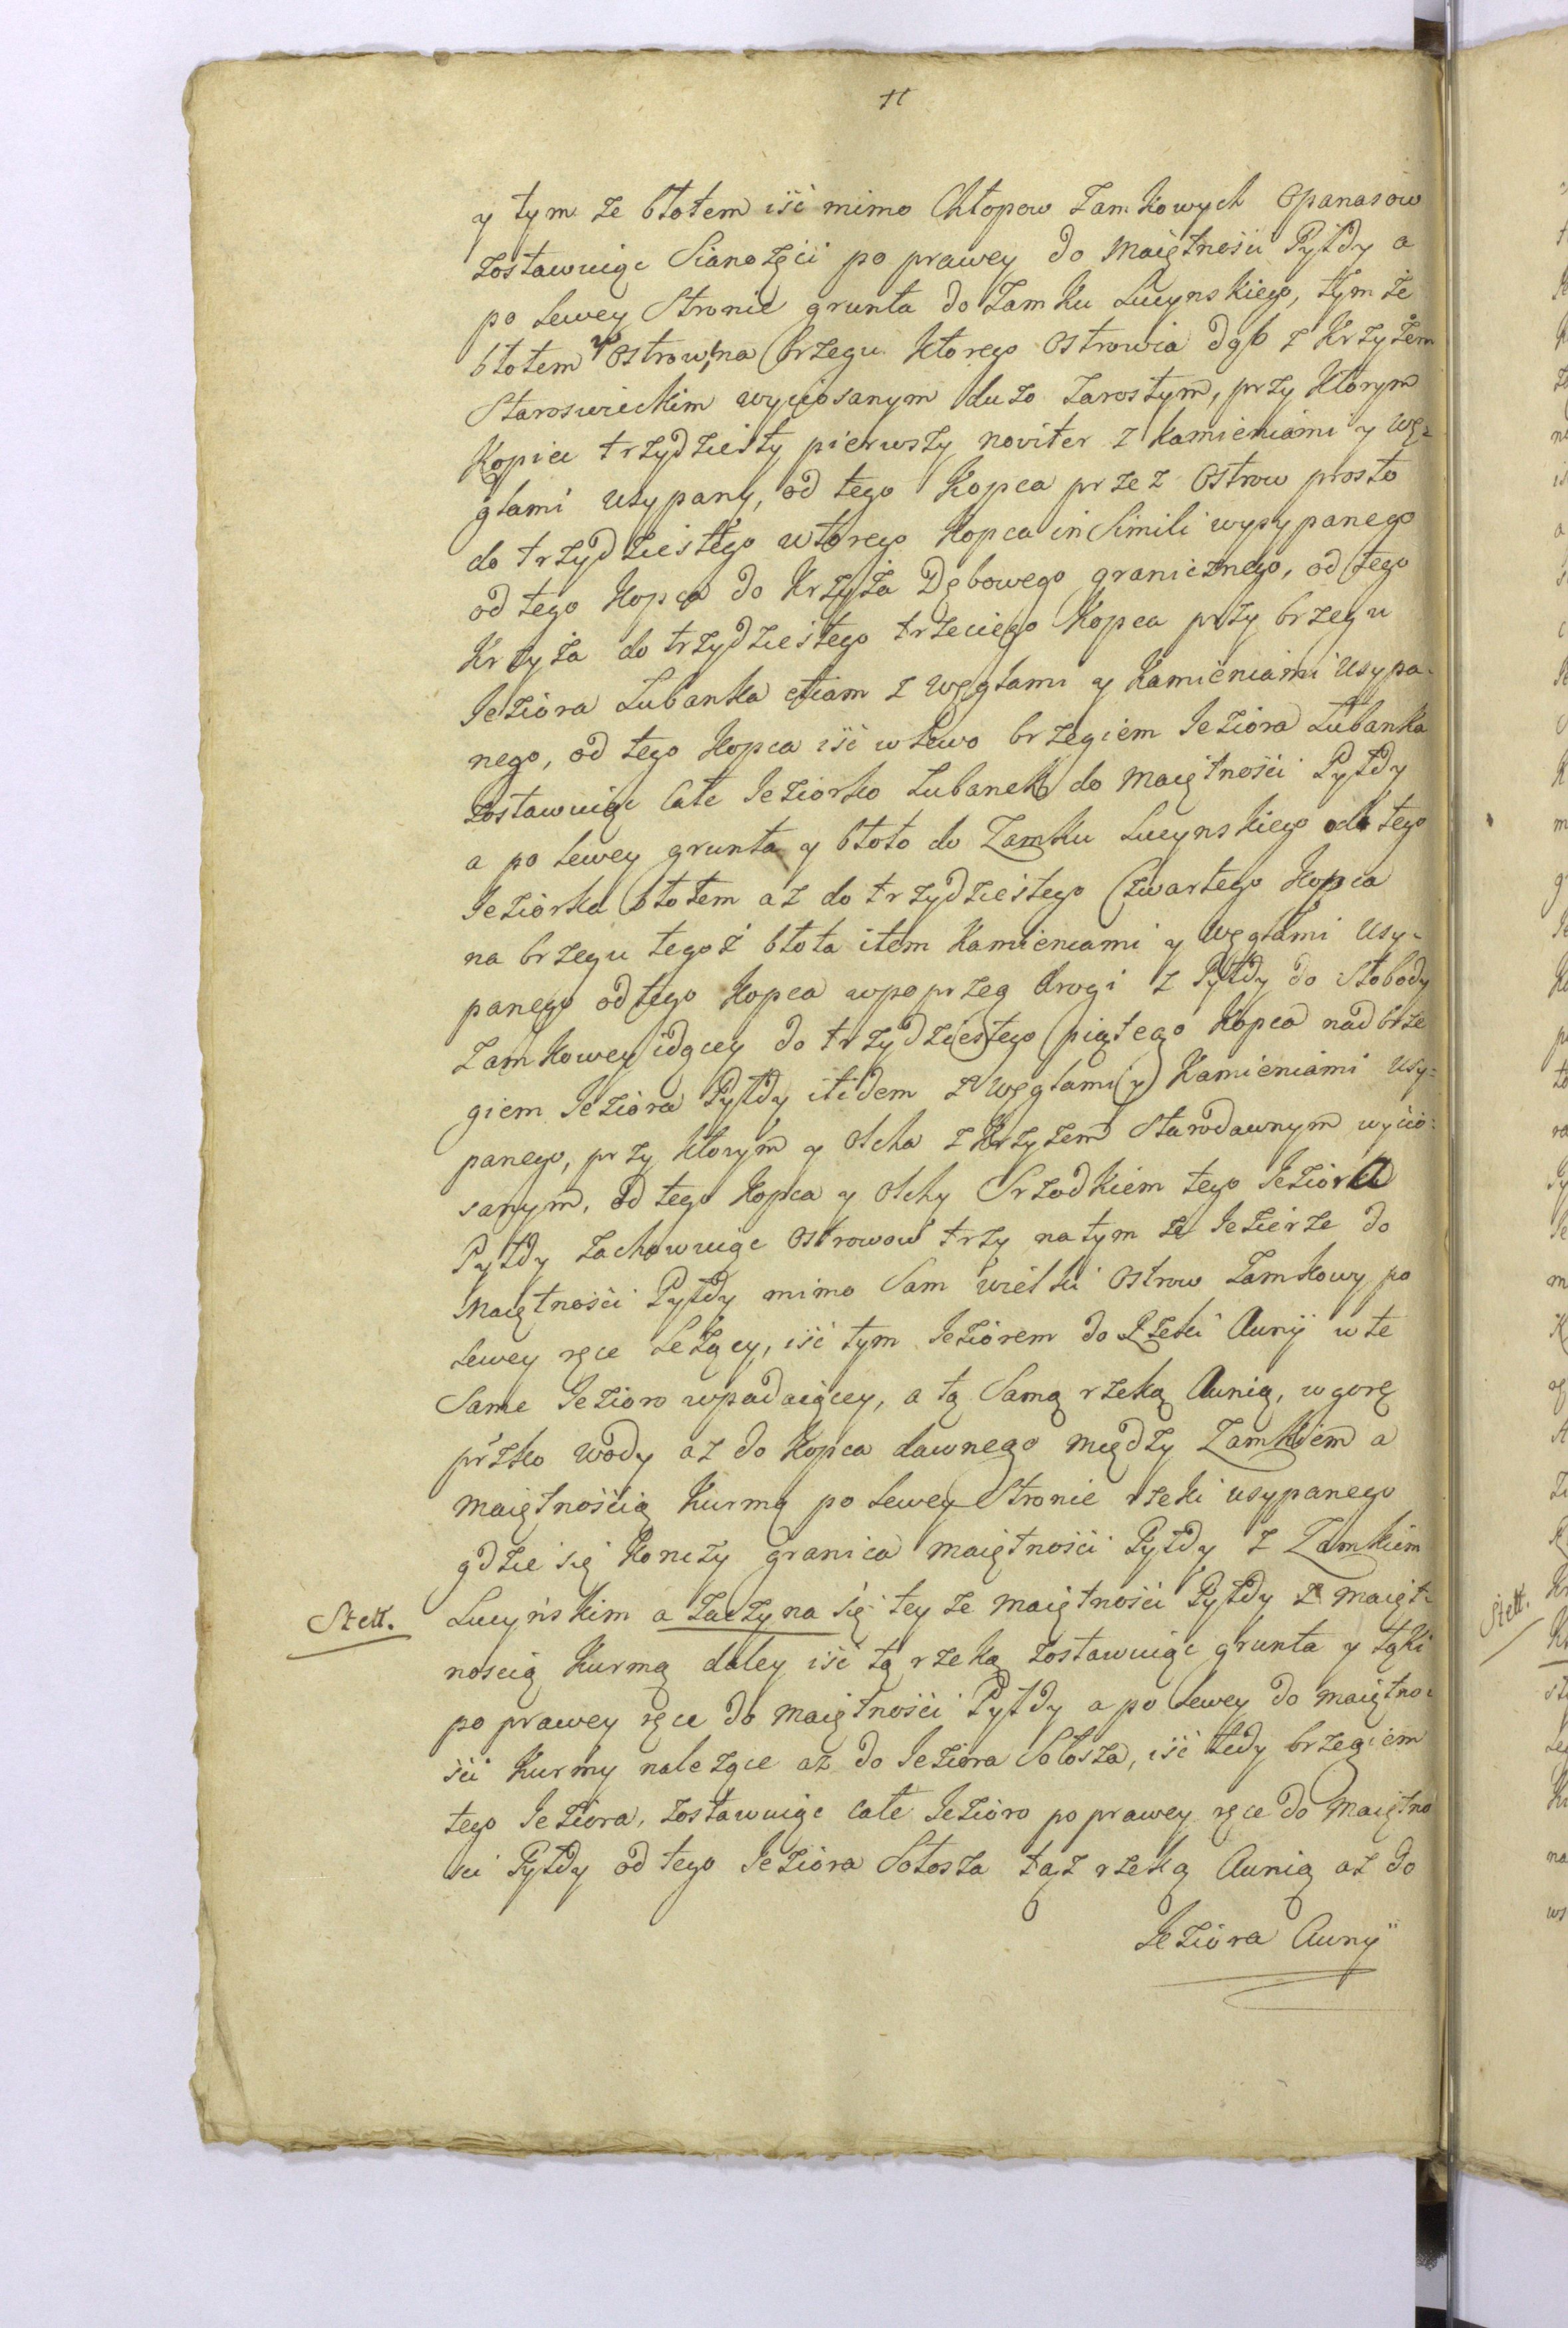 y tym ze błotem iść mimo Chłopow Zamkowych Opanasow
zostawuiąc Sianożęci po prawey do Maiętności Pyłdy a
po lewey Stronie grunta do Zamku Lucynskiego, tym że
błotem w Ostrow, na brzegu ktorego Ostrowia dąb z Krzyżem
Staroswieckim wyciosanym dużo zarosłym, przy ktorym
Kopiec trzydziesty pierwszy noviter z kamieniami y wę-
glami usypany, od tego Kopca przez Ostrow prosto
do trzydziestego wtorego Kopca in Simili wysypanego
od tego Kopca do Krzyża Dębowego granicznego, od tego
Krzyża do trzydziestego trzeciego Kopca przy brzegu
Jeziora Lubanka etiam z węglami y Kamieniami usypa-
nego, od tego Kopca iść w lewo brzegiem Jeziora Lubanka
zostawuiąc Całe Jeziorko Lubanek do Maiętności Pyłdy
a po lewey grunta y błoto do Zamku Lucynskiego od tego
Jeziorka błotem az do trzydziestego Czwartego Kopca
na brzegu tegoż błota item Kamieniami y węglami usy-
panego od tego Kopca wpoprzeg drogi z Pyłdy do Słobody
Zamkowey idącey do trzydziestego piątego Kopca nad brze
giem Jeziora Pyłdy itidem z węglami (y) Kamieniami usy-
panego, przy ktorym y Olcha z Krzyżem Starodawnym wycio-
sanym, od tego Kopca y Olchy Srzodkiem tego Jeziora
Pyłdy zachowuiąc Ostrowow trzy na tym ze Jezierze do
Maiętności Pyłdy mimo Sam wielki Ostrow Zamkowy po
lewey ręce leżący, iść tym Jeziorem do Rzeki Aunÿ w te
Same Jezioro wpadaiącey, a tą Samą rzeką Aunią, w gorę
przko wody az do Kopca dawnego między Zamkiem a
maiętnością Kurmą po lewey Stronie rzeki usypanego
gdzie się Konczy granica maiętności Pyłdy z Zamkiem
Stett. Lucyńskim a zaczyna się tey ze maiętności Pyłdy z maięt-
noscią Kurmą daley iść tą rzeką zostawuiąc grunta y łąki
po prawey ręce do maiętności Pyłdy a po lewey do maiętno-
ści Kurmy należące az do Jeziora Sołosza, iść tedy brzegiem
tego Jeziora, zostawuiąc całe Jezioro po prawey ręce do Maiętno
sci Pyłdy od tego Jeziora Sołosza tąż rzeką Aunią az do
Jeziora Aunÿ
Stett.